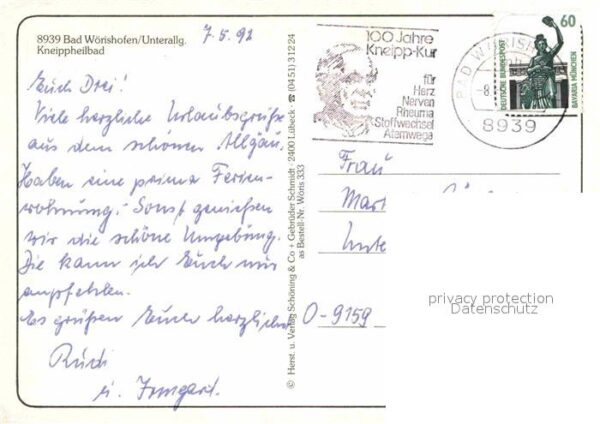 8939 Bad Wörishofen/Unterallg.
Kneippheilbad
7.5.92
Euch Drei!
Viele herzliche Urlaubsgrüße
aus dem schönen Allgäu.
Haben eine prima Ferien-
wohnung. Sonst genießen
wir die schöne Umgebung.
Die kann ich Euch nur
empfehlen.
Es grüßen Euch herzlich
Rudi
u. Irmgard.
© Herst. u. Verlag Schöning & Co + Gebrüder Schmidt · 2400 Lübeck · ☎ (04 51) 3 12 24
as Bestell-Nr. Wöris 333
100 Jahre
Kneipp-Kur
für
Herz
Nerven
Rheuma
Stoffwechsel
Atemwege
BAD WÖRISH
8939
60
DEUTSCHE BUNDESPOST
BAVARIA MÜNCHEN
Frau
Mar
Unte
O-9159
privacy protection
Datenschutz